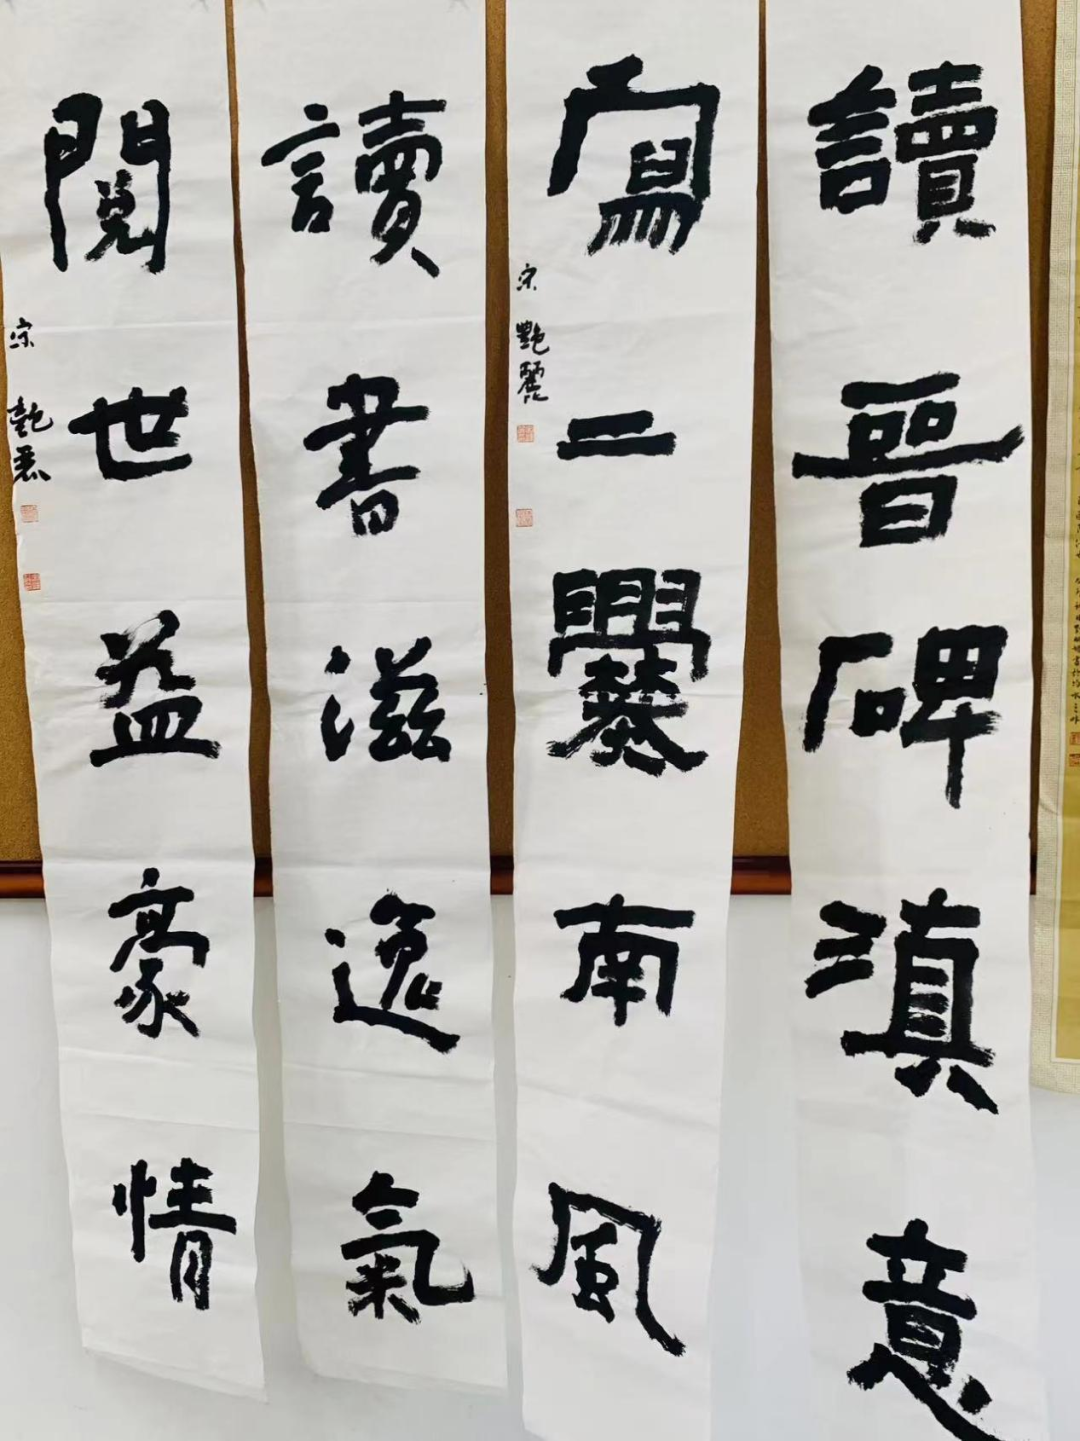 讀晉碑滇意
寫二爨南風
宗艷麗
讀書滋逸氣
閱世益豪情
宗艷麗